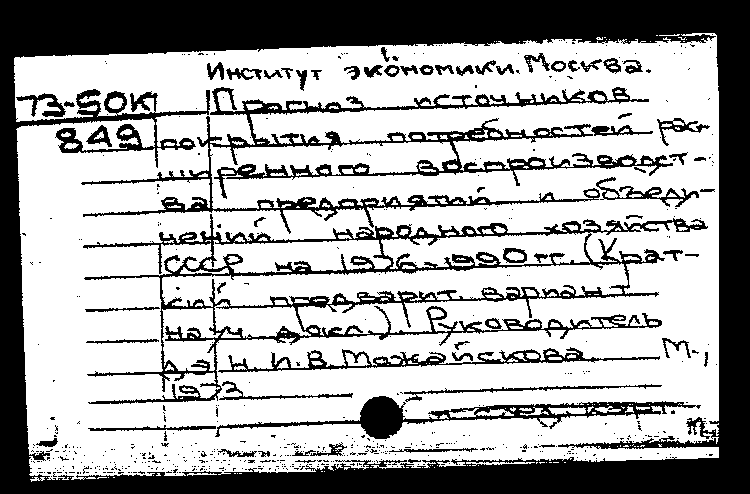 Институт экономики. Москва.
73-50К Прогноз источников
849 покрытия потребностей рас-
ширенного воспроизводст-
ва предприятий и объеди-
нений народного хозяйства
СССР на 1976-1990 гг. (Крат-
кий предварит. вариант
науч. докл.). Руководитель
д.э.н. И.В. Можайскова. М.,
1973
см. след. карт.